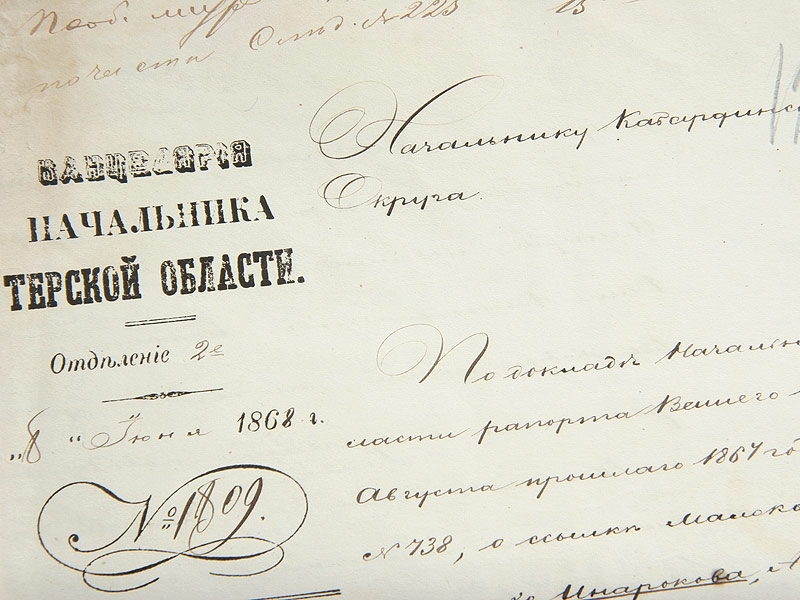 почести Отд. № 223 15
КАНЦЕЛЯРІЯ
НАЧАЛЬНИКА
ТЕРСКОЙ ОБЛАСТИ.
Отдѣленіе 2е
„8 “ Іюня 1868 г.
№ 1809.
Начальнику Кабардинс
Округа.
По докладѣ Начальн
ласти рапорта Вашего
Августа прошлаго 1867 го
№ 738, о ссылкѣ
Инарокова,